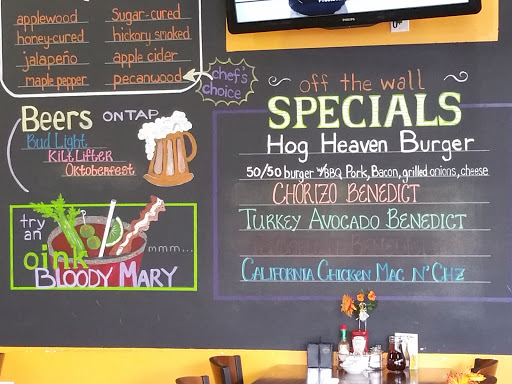 applewood
Sugar-cured
honey-cured
hickory smoked
jalapeño
apple cider
maple pepper
pecanwood
chef's
choice
Beers ON TAP
Bud Light
Kilt Lifter
Oktoberfest
try
an
oink
mmm...
BLOODY MARY
off the wall
SPECIALS
Hog Heaven Burger
50/50 burger w/BBQ Pork, Bacon, grilled onions, cheese
CHORIZO BENEDICT
TURKEY AVOCADO BENEDICT
CALIFORNIA CHICKEN MAC N' CHZ
PHILIPS